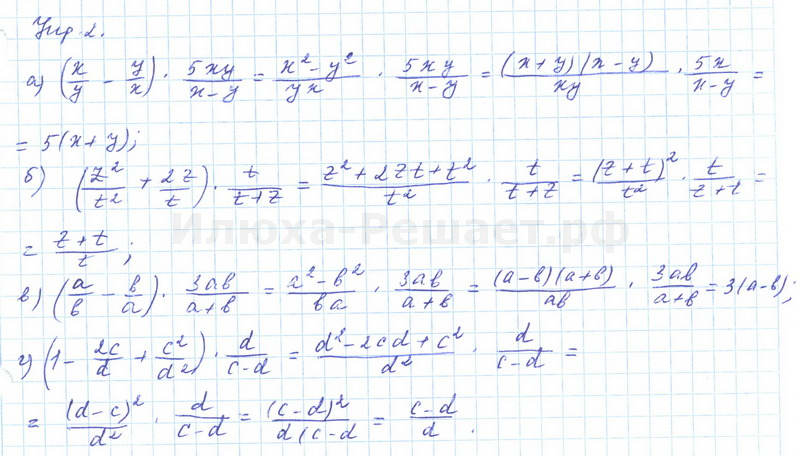 Упр. 2.
а) (x/y - y/x) · 5xy/(x-y) = (x² - y²)/(yx) · 5xy/(x-y) = (x+y)(x-y)/(xy) · 5x/(x-y) =
= 5(x+y);
б) (z²/t² + 2z/t) · t/(t+z) = (z²+2zt+t²)/t² · t/(t+z) = (z+t)²/t² · t/(z+t) =
= (z+t)/t;
Илюха-Решает.рф
в) (a/в - в/a) · 3aв/(a+в) = (a²-в²)/(вa) · 3aв/(a+в) = (a-в)(a+в)/(aв) · 3aв/(a+в) = 3(a-в);
г) (1 - 2c/d + c²/d²) · d/(c-d) = (d²-2cd+c²)/d² · d/(c-d) =
= (d-c)²/d² · d/(c-d) = (c-d)²/(d(c-d) = (c-d)/d.